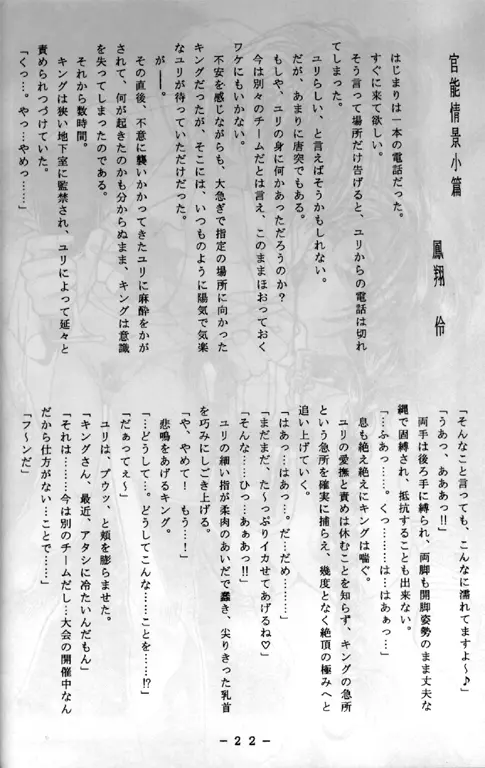 官能情景小篇
鳳翔 伶
はじまりは一本の電話だった。
すぐに来て欲しい。
そう言って場所だけ告げると、ユリからの電話は切れ
てしまった。
ユリらしい、と言えばそうかもしれない。
だが、あまりに唐突でもある。
もしや、ユリの身に何かあっただろうのか？
今は別々のチームだとは言え、このままほおっておく
ワケにもいかない。
不安を感じながらも、大急ぎで指定の場所に向かった
キングだったが、そこには、いつものように陽気で気楽
なユリが待っていただけだった。
が――。
その直後、不意に襲いかかってきたユリに麻酔をかが
されて、何が起きたのかも分からぬまま、キングは意識
を失ってしまったのである。
それから数時間。
キングは狭い地下室に監禁され、ユリによって延々と
責められつづけていた。
「くっ…。やっ…やめっ……」
「そんなこと言っても、こんなに濡れてますよ～♪」
「うあっ、あああっ!!」
両手は後ろ手に縛られ、両脚も開脚姿勢のまま丈夫な
縄で固縛され、抵抗することも出来ない。
「…ふあっ…。くっ………は…はあぁっ…」
息も絶え絶えにキングは喘ぐ。
ユリの愛撫と責めは休むことを知らず、キングの急所
という急所を確実に捕らえ、幾度となく絶頂の極みへと
追い上げていく。
「はあっ…はあっ…。だ…だめ………」
「まだまだ、た～っぷりイカせてあげるね♡」
「そんな……ひっ…あぁあっ!!」
ユリの細い指が柔肉のあいだで蠢き、尖りきった乳首
を巧みにしごき上げる。
「や、やめて！　もう…！」
悲鳴をあげるキング。
「…どうして…。どうしてこんな……ことを……!?」
「だぁってぇ～」
ユリは、プウッ、と頬を膨らませた。
「キングさん、最近、アタシに冷たいんだもん」
「それは………今は別のチームだし…大会の開催中なん
だから仕方がない…ことで……」
「フ～ンだ」
－22－